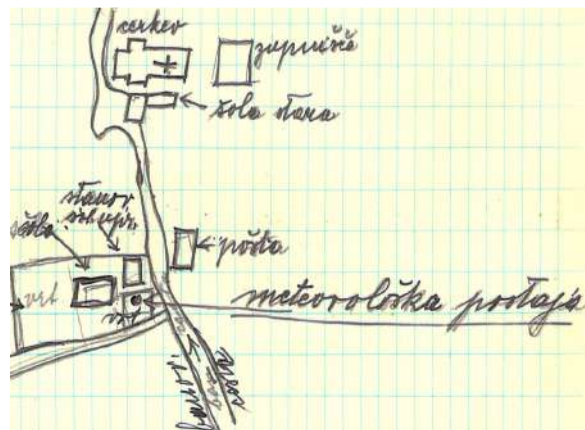 cerkev
župnišče
šola stara
stanov.
šol. upr.
šola
pošta
vrt
vrt
meteorološka postaja